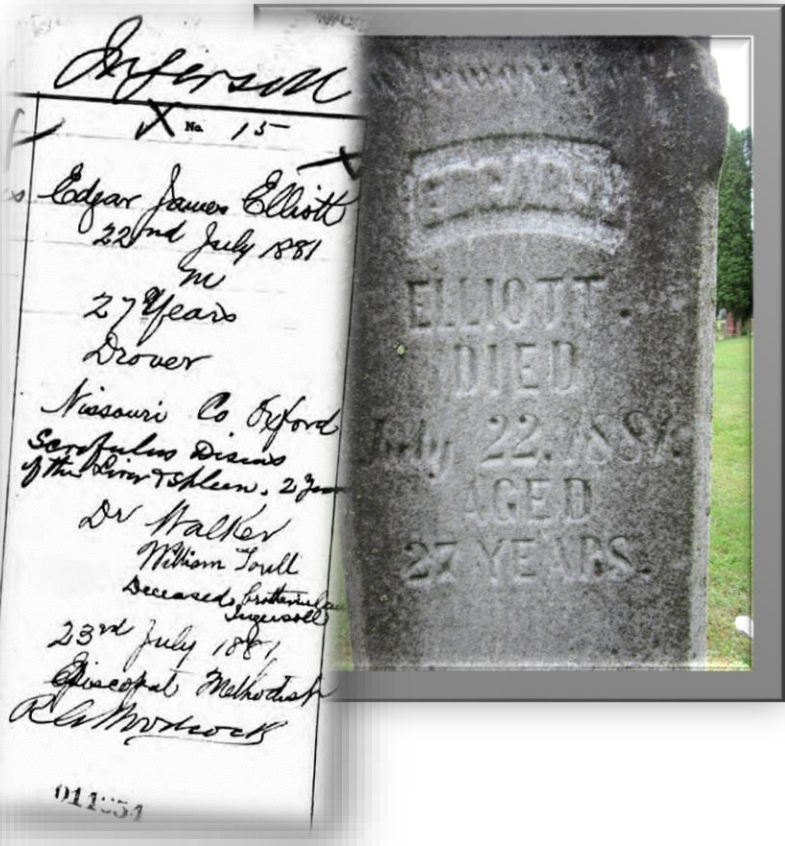 Ingersoll
No. 15
Edgar James Elliott
22nd July 1881
m
27 Years
Drover
Nissouri Co Oxford
Scrofulus Diseas
of the Liver & Spleen. 2 Years
Dr Walker
William
Deceased, brotherinlaw
Ingersoll
23rd July 1881
Episcopal Methodist
011
Memory
ELLIOTT.
DIED
July 22, 1881.
AGED
27 YEARS.